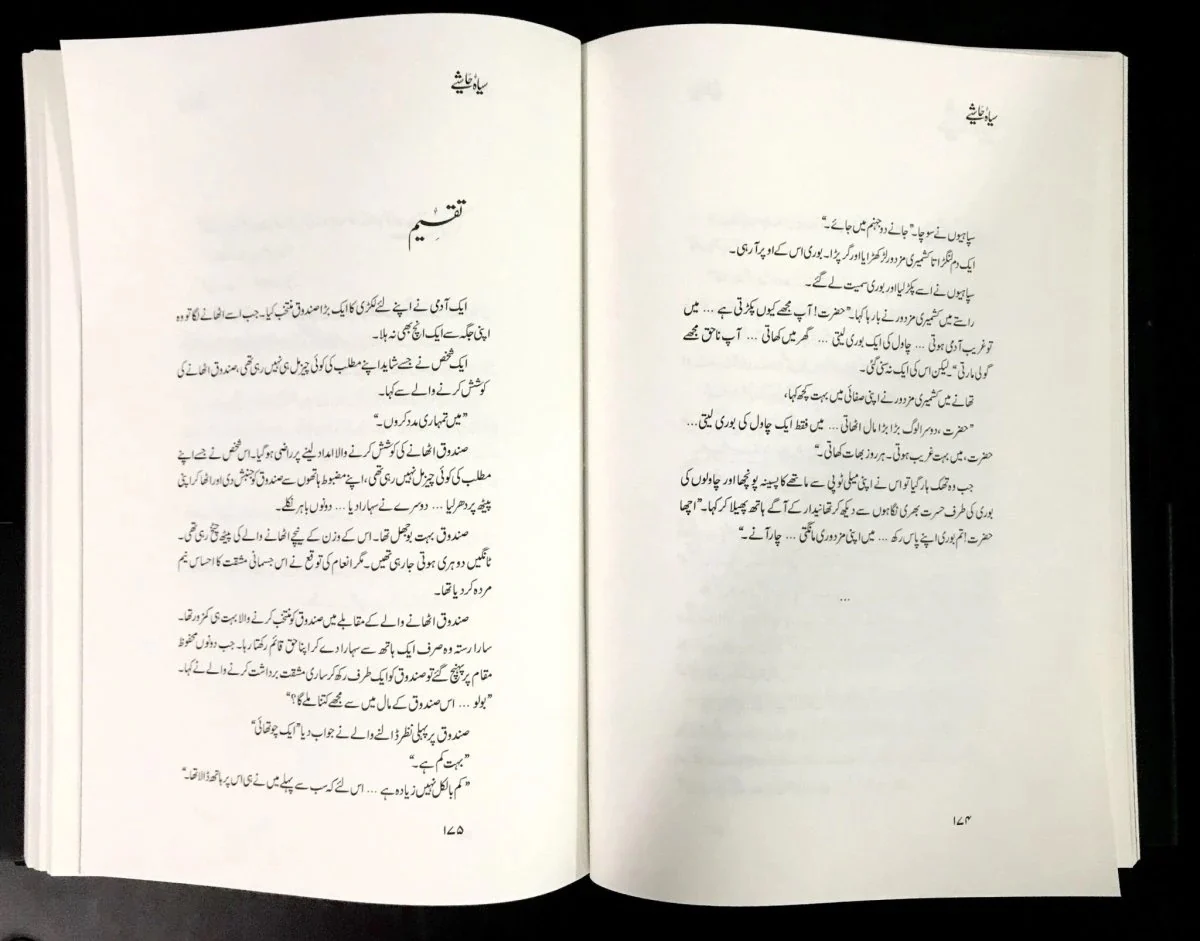 سیاہ حاشیے
سپاہیوں نے سوچا۔ ”جانے دو جہنم میں جائے۔“
ایک دم لنگڑاتا کشمیری مزدور لڑکھڑایا اور گر پڑا۔ بوری اس کے اوپر آ رہی۔
سپاہیوں نے اسے پکڑ لیا اور بوری سمیت لے گئے۔
راستے میں کشمیری مزدور نے بارہا کہا۔ ”حضرت! آپ مجھے کیوں پکڑتی ہے ... میں
تو غریب آدمی ہوتی ... چاول کی ایک بوری لیتی ... گھر میں کھاتی ... آپ ناحق مجھے
گولی مارتی“۔ لیکن اس کی ایک نہ سنی گئی۔
تھانے میں کشمیری مزدور نے اپنی صفائی میں بہت کچھ کہا،
”حضرت، دوسرا لوگ بڑا بڑا مال اٹھاتی ... میں فقط ایک چاول کی بوری لیتی ...
حضرت، میں بہت غریب ہوتی۔ ہر روز بھات کھاتی۔“
جب وہ تھک ہار گیا تو اس نے اپنی میلی ٹوپی سے ماتھے کا پسینہ پونچھا اور چاولوں کی
بوری کی طرف حسرت بھری نگاہوں سے دیکھ کر تھانیدار کے آگے ہاتھ پھیلا کر کہا۔ ”اچھا
حضرت! تم بوری اپنے پاس رکھ ... میں اپنی مزدوری مانگتی ... چار آنے۔“
...
۱۷۴
سیاہ حاشیے
تقسیم
ایک آدمی نے اپنے لئے لکڑی کا ایک بڑا صندوق منتخب کیا۔ جب اسے اٹھانے لگا تو وہ
اپنی جگہ سے ایک انچ بھی نہ ہلا۔
ایک شخص نے جسے شاید اپنے مطلب کی کوئی چیز مل ہی نہیں رہی تھی، صندوق اٹھانے کی
کوشش کرنے والے سے کہا۔
”میں تمہاری مدد کروں۔“
صندوق اٹھانے کی کوشش کرنے والا امداد لینے پر راضی ہو گیا۔ اس شخص نے جسے اپنے
مطلب کی کوئی چیز مل نہیں رہی تھی، اپنے مضبوط ہاتھوں سے صندوق کو جنبش دی اور اٹھا کر اپنی
پیٹھ پر دھر لیا ... دوسرے نے سہارا دیا ... دونوں باہر نکلے۔
صندوق بہت بوجھل تھا۔ اس کے وزن کے نیچے اٹھانے والے کی پیٹھ چٹخ رہی تھی۔
ٹانگیں دوہری ہوتی جا رہی تھیں۔ مگر انعام کی توقع نے اس جسمانی مشقت کا احساس نیم
مردہ کر دیا تھا۔
صندوق اٹھانے والے کے مقابلے میں صندوق کو منتخب کرنے والا بہت ہی کمزور تھا۔
سارا رستہ وہ صرف ایک ہاتھ سے سہارا دے کر اپنا حق قائم رکھتا رہا۔ جب دونوں محفوظ
مقام پر پہنچ گئے تو صندوق کو ایک طرف رکھ کر ساری مشقت برداشت کرنے والے نے کہا۔
”بولو ... اس صندوق کے مال میں سے مجھے کتنا ملے گا؟“
صندوق پر پہلی نظر ڈالنے والے نے جواب دیا ”ایک چوتھائی“
”بہت کم ہے۔“
”کم بالکل نہیں زیادہ ہے ... اس لئے کہ سب سے پہلے میں نے ہی اس پر ہاتھ ڈالا تھا۔“
۱۷۵